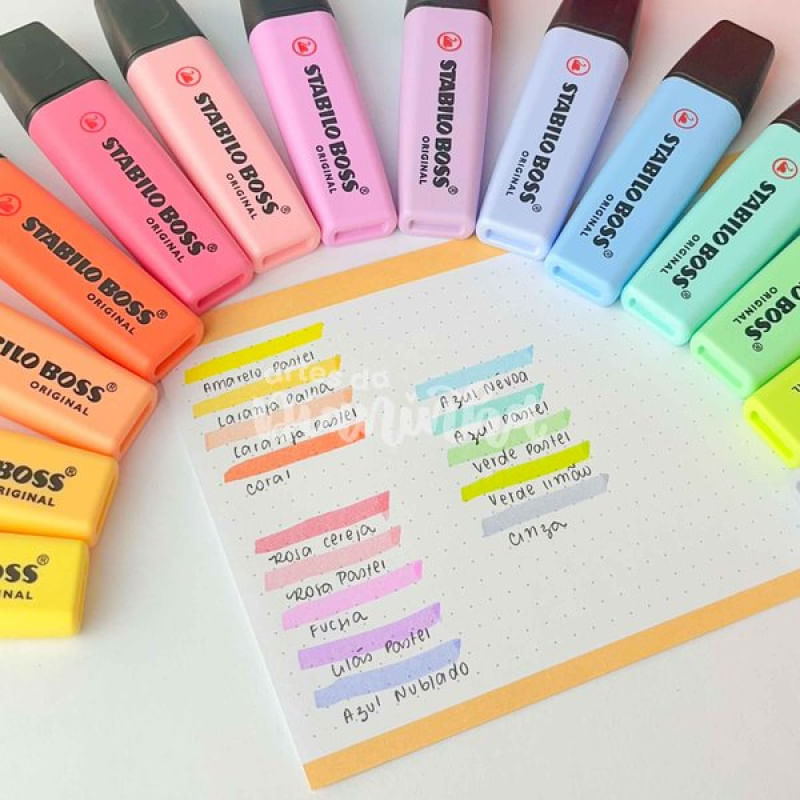 STABILO BOSS®
ORIGINAL
STABILO BOSS®
ORIGINAL
STABILO BOSS®
ORIGINAL
STABILO BOSS®
ORIGINAL
STABILO BOSS®
ORIGINAL
STABILO BOSS®
ORIGINAL
STABILO BOSS®
ORIGINAL
STABILO BOSS®
ORIGINAL
BILO BOSS®
ORIGINAL
BOSS®
ORIGINAL
BOSS®
ORIGINAL
OSS®
NAL
Amarelo Pastel
Laranja Palha
Laranja Pastel
Coral
Rosa Cereja
Rosa Pastel
Fucha
Lilás Pastel
Azul Nublado
Azul Névoa
Azul Pastel
Verde Pastel
Verde limão
Cinza
artes da